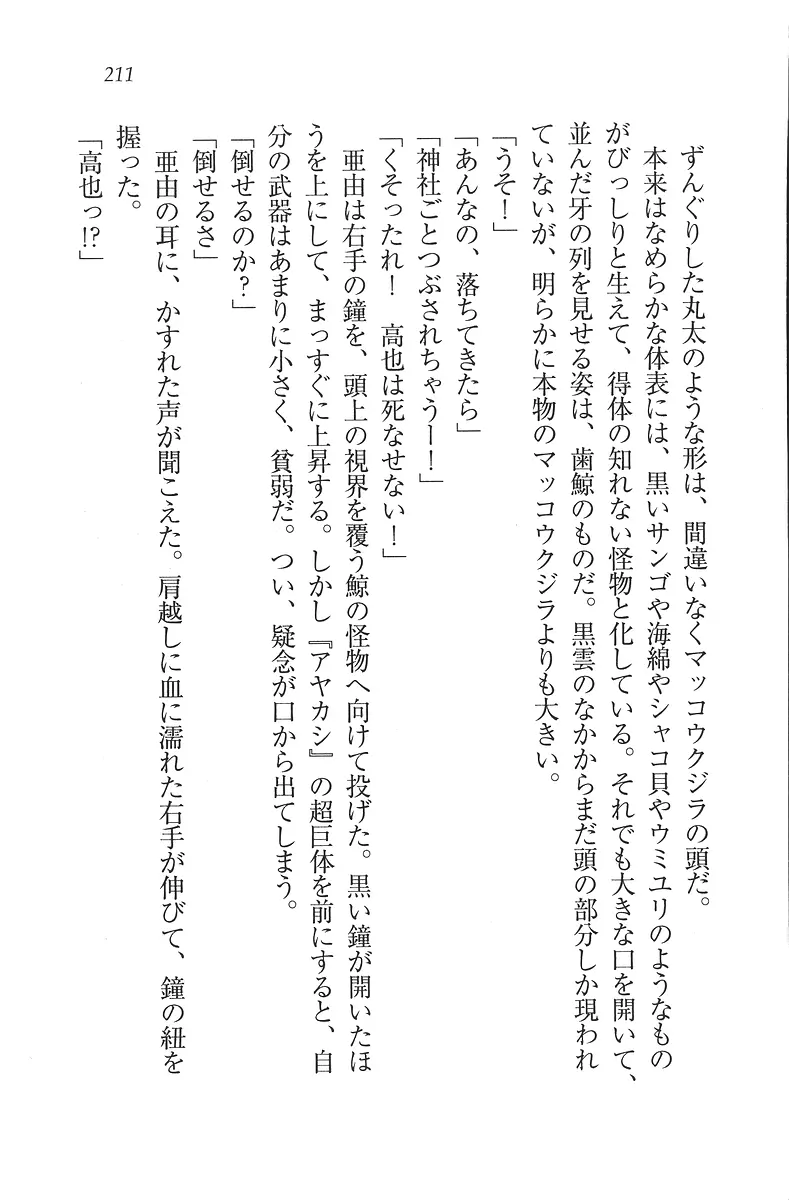 211
ずんぐりした丸太のような形は、間違いなくマッコウクジラの頭だ。
本来はなめらかな体表には、黒いサンゴや海綿やシャコ貝やウミユリのようなもの
がびっしりと生えて、得体の知れない怪物と化している。それでも大きな口を開いて、
並んだ牙の列を見せる姿は、歯鯨のものだ。黒雲のなかからまだ頭の部分しか現われ
ていないが、明らかに本物のマッコウクジラよりも大きい。
「うそ！」
「あんなの、落ちてきたら」
「神社ごとつぶされちゃうー！」
「くそったれ！　高也は死なせない！」
亜由は右手の鐘を、頭上の視界を覆う鯨の怪物へ向けて投げた。黒い鐘が開いたほ
うを上にして、まっすぐに上昇する。しかし『アヤカシ』の超巨体を前にすると、自
分の武器はあまりに小さく、貧弱だ。つい、疑念が口から出てしまう。
「倒せるのか？」
「倒せるさ」
亜由の耳に、かすれた声が聞こえた。肩越しに血に濡れた右手が伸びて、鐘の紐を
握った。
「高也っ!?」